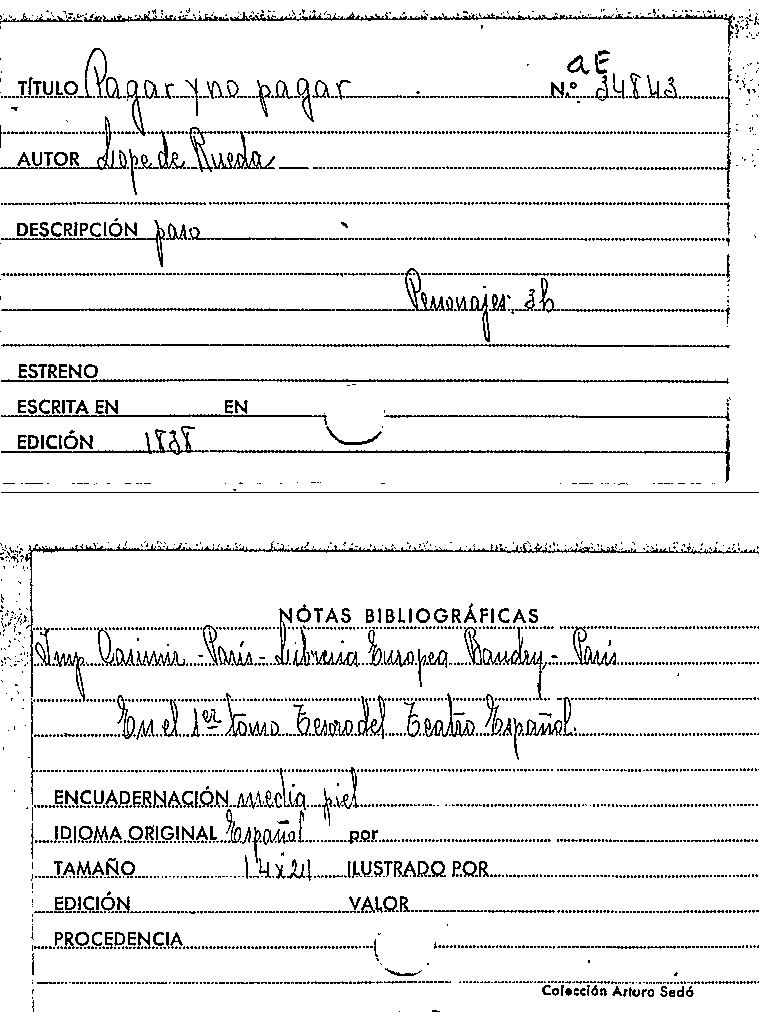 aE
TÍTULO Pagar y no pagar N.º 34843
AUTOR Lope de Rueda
DESCRIPCIÓN paso
Personajes. 3h
ESTRENO
ESCRITA EN EN
EDICIÓN 1838
NOTAS BIBLIOGRÁFICAS
Imp Casimir - París - Libreria Europea Baudry - París
En el 1er tomo Tesoro del Teatro Español.
ENCUADERNACIÓN media piel
IDIOMA ORIGINAL Español por
TAMAÑO 14x21 ILUSTRADO POR
EDICIÓN VALOR
PROCEDENCIA
Colección Arturo Sedó